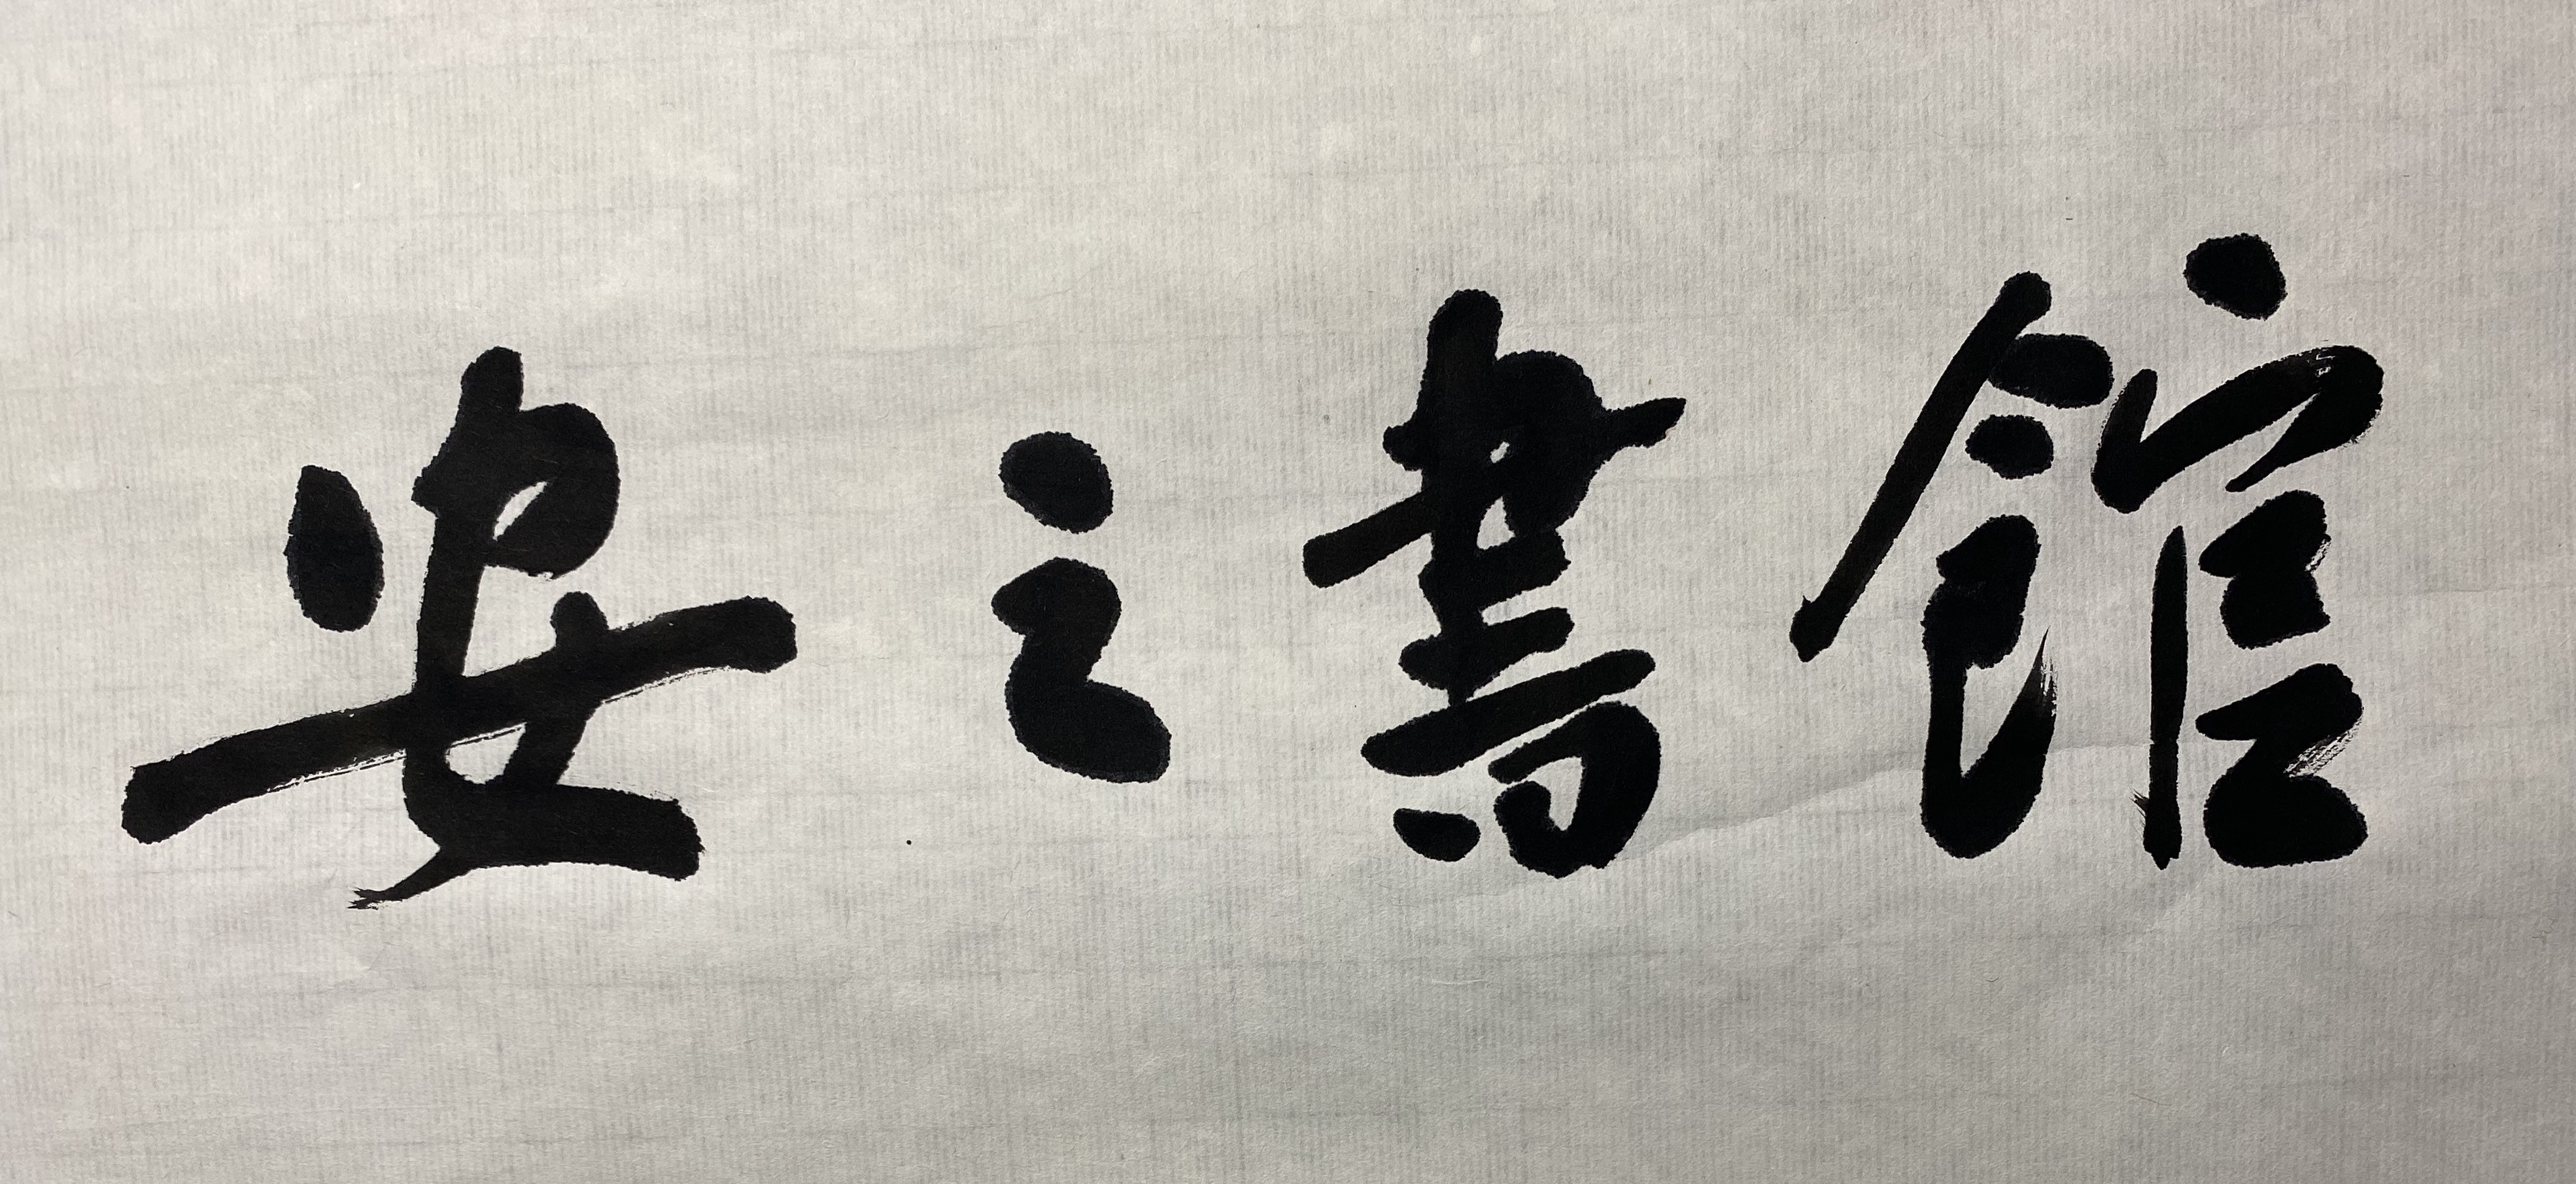 安之書館